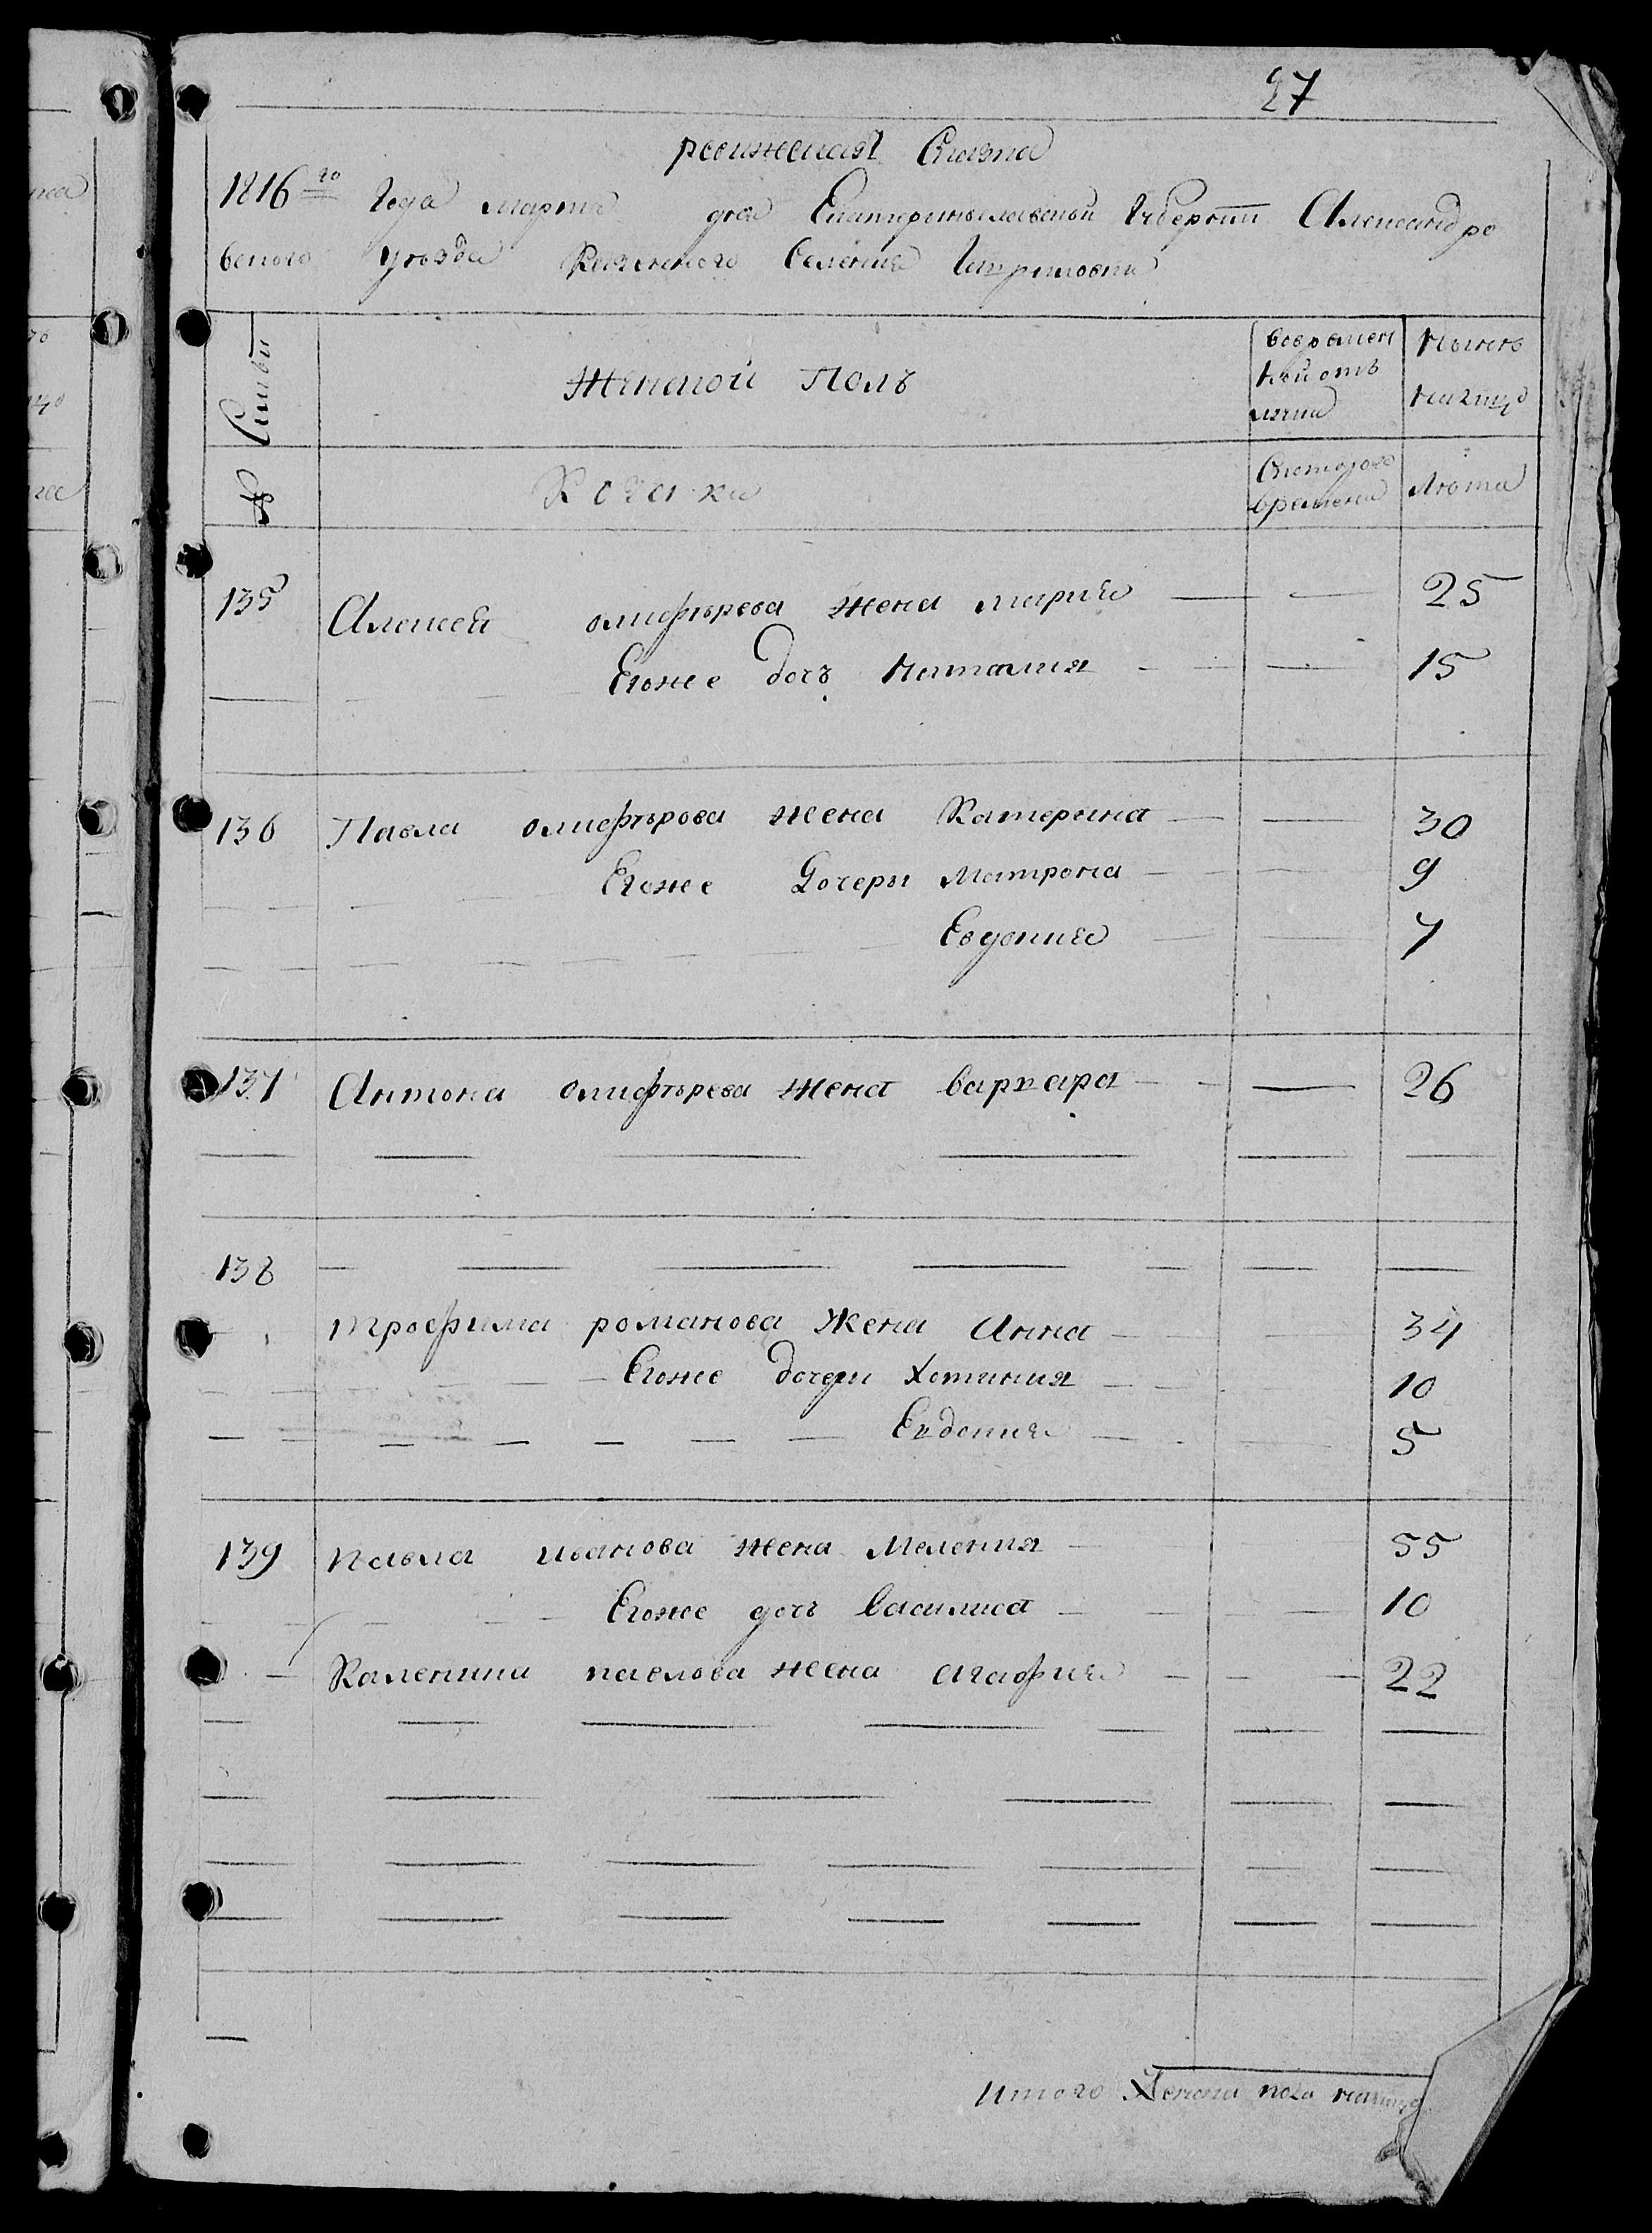 27
ревижская Сказка
1816го Года марта дня Екатеринославской Губернии Александро
вского уезда Казенного Селения
Семьи Женской Полъ вовремен ной отъ лучки Ныне налицо
№ Козаки Скоторого времени Лета
135 Алексея олифърева жена мария 25
Егоже дочъ Наталия 15
136 Павла олифърова жена Катерина 30
Егоже Дочеры Матрона 9
Евдокия 7
137 Антона олифърева жена варвара 26
138
трофима романова Жена Анна 34
Егоже дочери Хотиния 10
Евдокия 5
139 павла иванова жена Мелания 55
Егоже дочъ Василиса 10
Каленика павлова жена агафия 22
итого Женска пола налицо